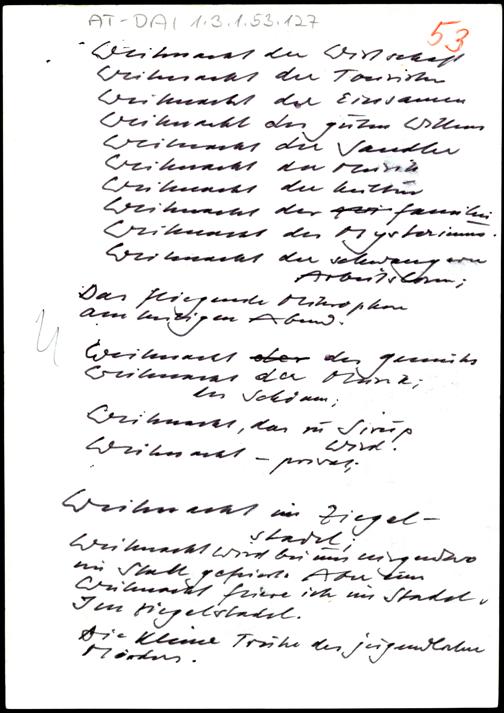 AT-DAI 1.3.1.53.127
53
Weihnacht der Wirtschaft
Weihnacht der Touristen
Weihnacht der Einsamen
Weihnacht des guten Willens
Weihnacht der Sandler
Weihnacht der Musik
Weihnacht der Kultur
Weihnacht der Familie
Weihnacht des Mysteriums.
Weihnacht der schwangeren
Arbeitslosen;
Das fliegende Mikrophon
am heiligen Abend.
Weihnacht der des Gemüts
Weihnacht der Musik;
der Scham;
Weihnacht, das zu Sirup
wird.
Weihnacht – privat;
Weihnacht im Ziegel-
stadel;
Weihnacht wird bei uns nirgendwo
im Stall gefeiert. Aber
Weihnacht feiere ich im Stadel.
Im Ziegelstadel.
Die kleine Truhe des jugendlichen
Mörders.